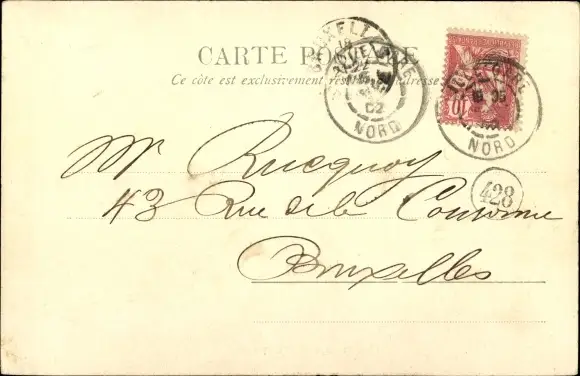 CARTE POSTALE
Ce côté est exclusivement réservé à l'adresse
02
NORD
NORD
10
428
Mr Rucquoy
43 Rue de la Couronne
Bruxelles